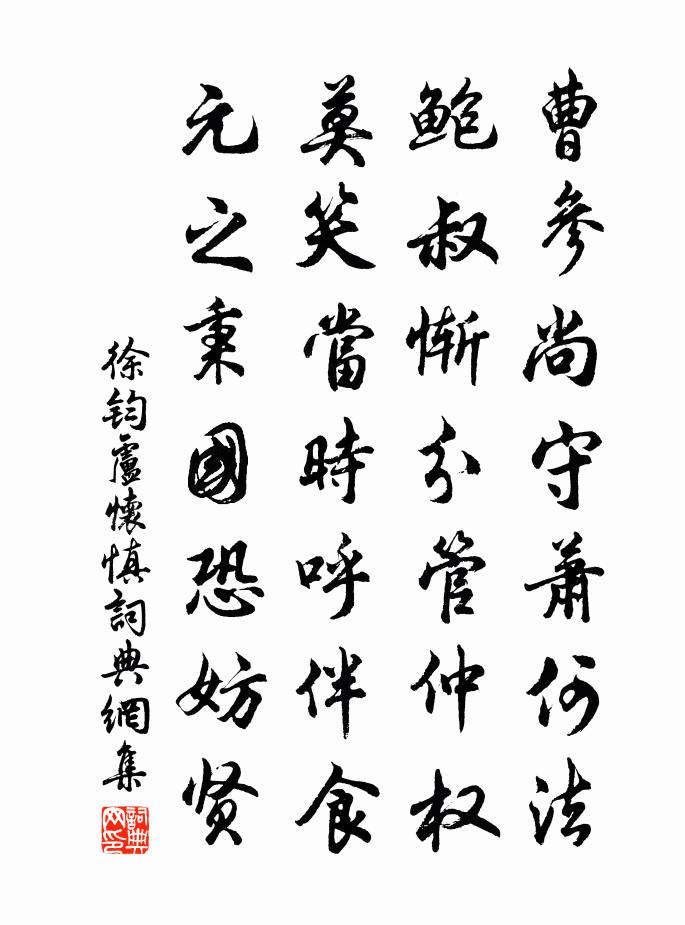 曹參尚守蕭何法
鲍叔慚分管仲权
莫笑當時呼伴食
元之秉國恐妨贤
徐鈞盧懷慎詞典網集
詞典网印